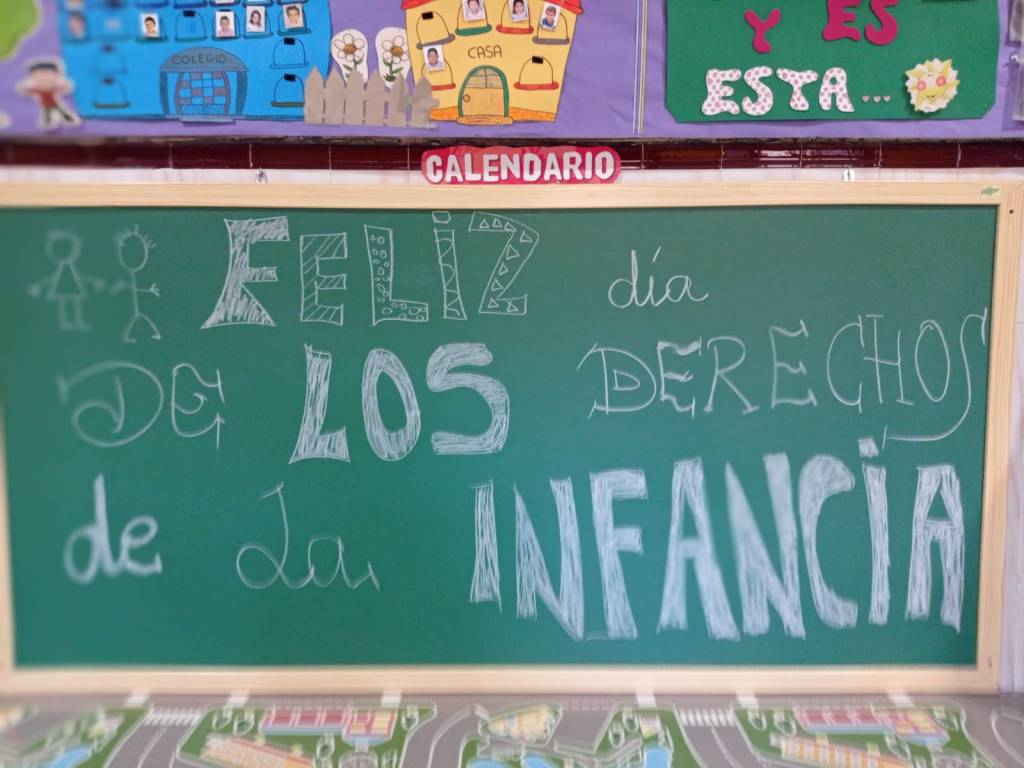 COLEGIO
CASA
Y ES
ESTA...
CALENDARIO
FELIZ día
DE LOS DERECHOS
de La INFANCIA